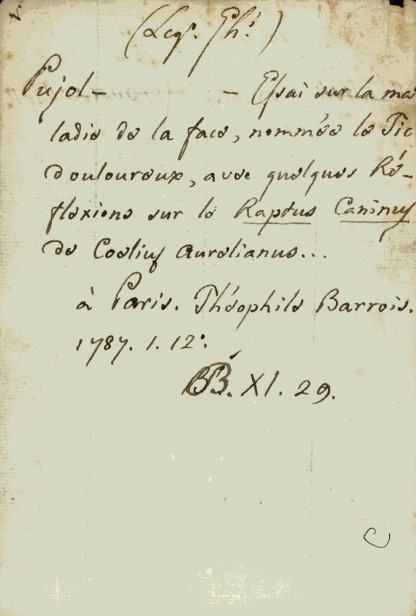 (Leg. Ph.)
Pujol — — Essai sur la ma
ladie de la face, nommée le Tic
douloureux, avec quelques Ré-
flexions sur le Raptus Caninus
de Coelius Aurelianus...
à Paris. Théophile Barrois.
1787. 1. 12°.
BB. XI. 29.